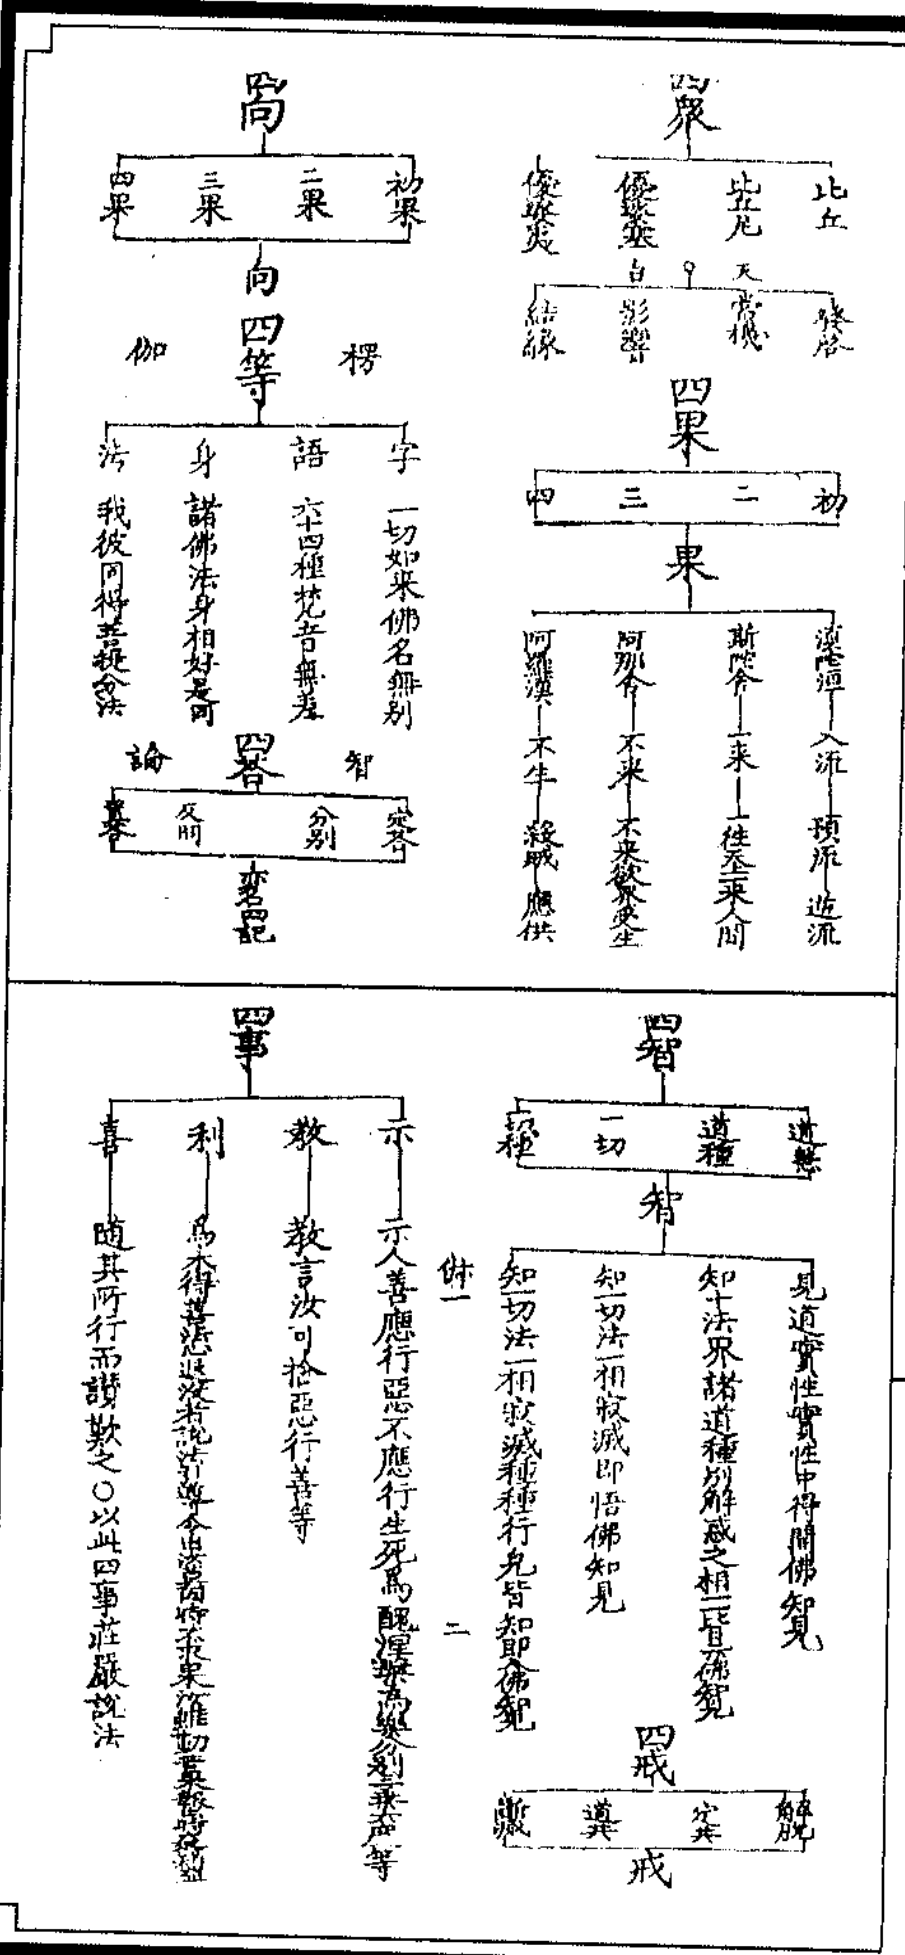 四衆
比丘
比丘尼
優婆塞
優婆夷
天
台
發啓
當機
影響
結緣
四果
初
二
三
四
果
須陀洹 入流 預流 逆流
斯陀含 一来 一往天上一来人間
阿那含 不来 不来欲界受生
阿羅漢 不生 殺賊 應供
四向
初果
二果
三果
四果
向
楞
四等
伽
字 一切如来佛名無别
語 六十四種梵音無差
身 諸佛法身相好是同
法 我彼同得菩提分法
智
四答
論
定答
分别
反問
置答
四記
四智
道慧
道種
一切
一切種
智
見道實性實性中得開佛知見
知十法界諸道種别解惑之相一一皆見佛知見
知一切法一相寂滅即悟佛知見
知一切法一相寂滅種種行皃皆知即入佛知見
四戒
解脱
定共
道共
斷
戒
四事
示 示人善應行惡不應行生死爲醜涅槃爲樂分别三乘等
教 教言汝可捨惡行善等
利 爲未得善法退没者說法引導令出
喜 随其所行而讃歎之〇以此四事莊嚴說法
二